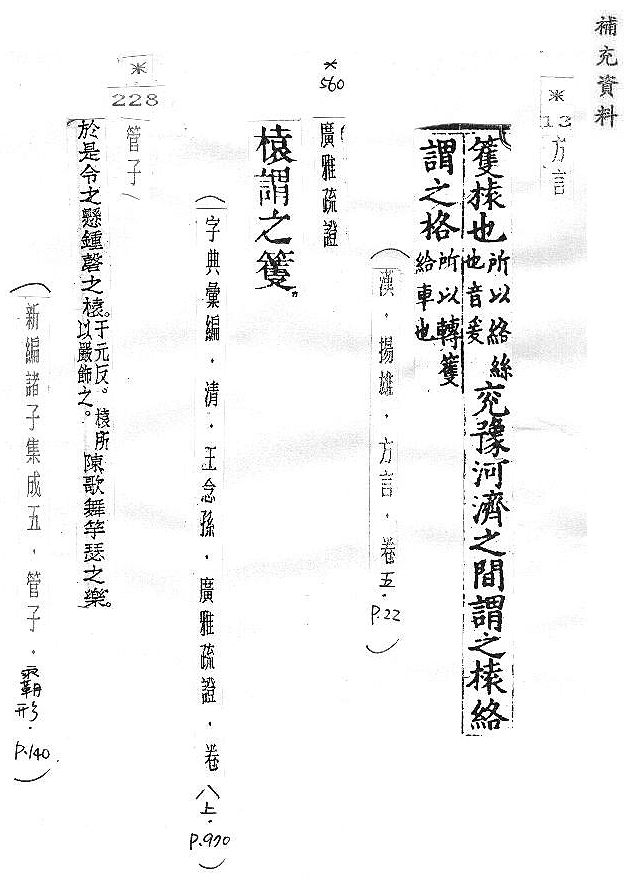 補充資料
*
13
方言
篗榬也所以絡絲也音爰兗豫河濟之間謂之榬絡
謂之格所以轉篗給車也
(漢．揚雄．方言．卷五．P.22)
*
560
廣雅疏證
榬謂之篗。
(字典彙編．清．王念孫．廣雅疏證．卷八上．P.970)
*
228
管子
於是令之懸鍾磬之榬。于元反。榬所以嚴飾之。陳歌舞竽瑟之樂。
(新編諸子集成五．管子．霸形．P.140)